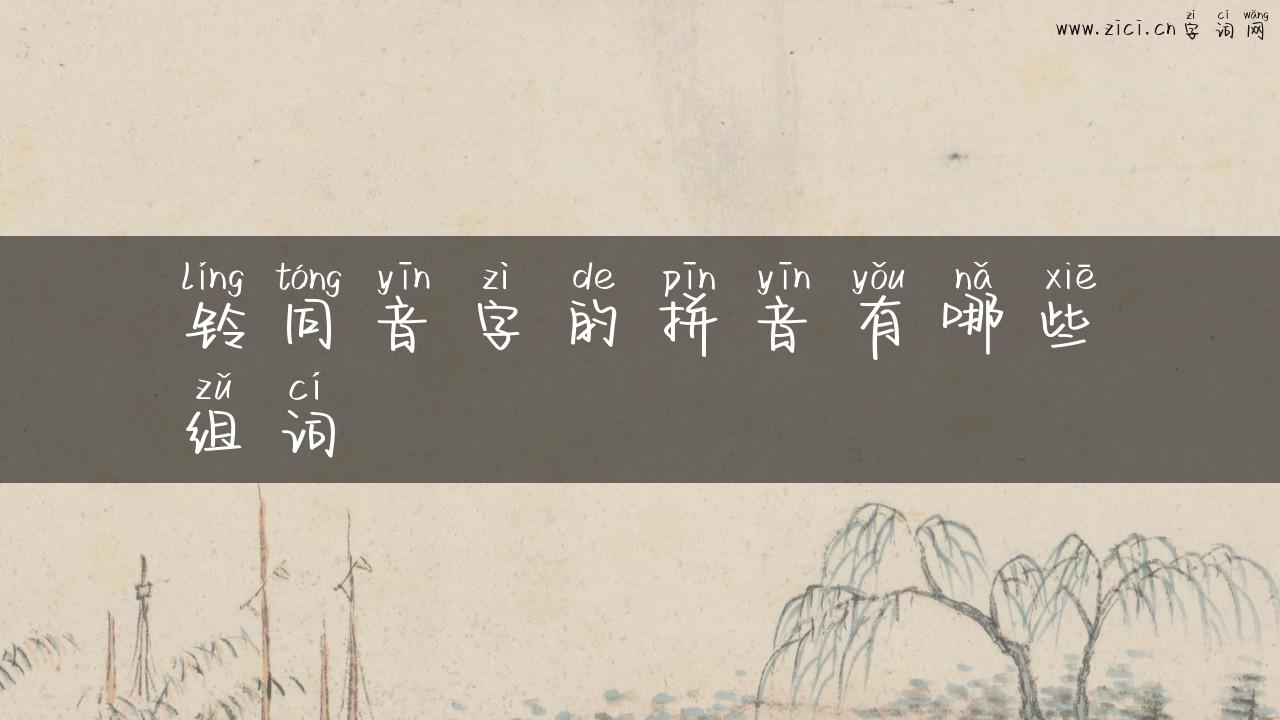 zì cí wǎng
www.zici.cn 字词网
líng tóng yīn zì de pīn yīn yǒu nǎ xiē
铃同音字的拼音有哪些
zǔ cí
组词